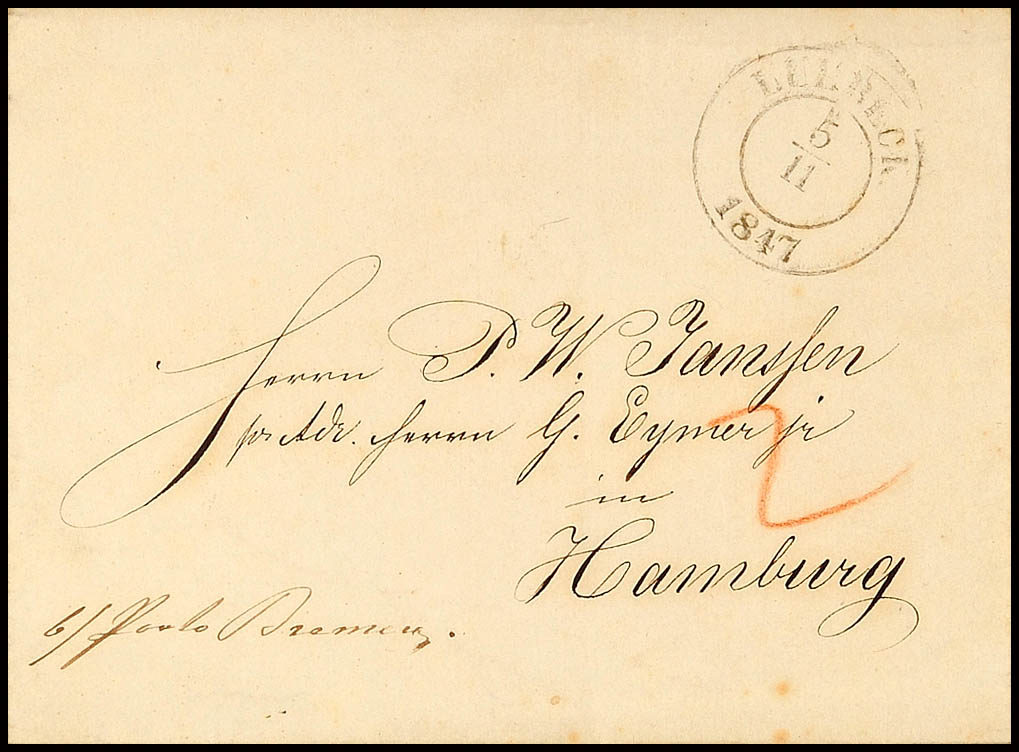 LUEBECK
5
11
1847
Herrn P. W. Janssen
pr Adr. Herrn G. Eymer jr
in
Hamburg
2
6/ Porto Bremen.